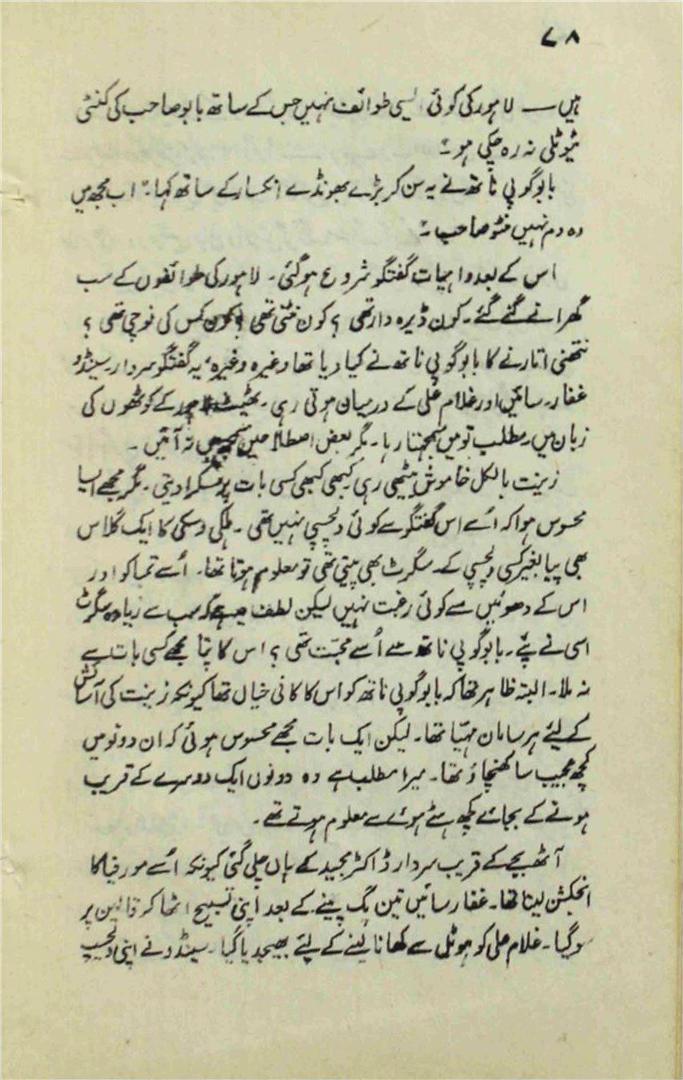 ۷۸
ہیں — لاہور کی کوئی ایسی طوائف نہیں جس کے ساتھ بابو صاحب کی کنٹی
نیوٹلی نہ رہ چکی ہو۔"
بابو گوپی ناتھ نے یہ سن کر بڑے بھونڈے انکسار کے ساتھ کہا۔ "اب مجھ میں
وہ دم نہیں منٹو صاحب۔"
اس کے بعد واہیات گفتگو شروع ہوگئی۔ لاہور کی طوائفوں کے سب
گھرانے گنے گئے۔ کون ڈیرہ دار تھی؟ کون نٹنی تھی؟ کون کس کی نوچی تھی؟
نتھنی اتارنے کا بابو گوپی ناتھ نے کیا دیا تھا وغیرہ وغیرہ، یہ گفتگو سردار سینڈو
غفار سائیں اور غلام علی کے درمیان ہوتی رہی۔ ٹھیٹ لاہور کے کوٹھوں کی
زبان میں۔ مطلب تو میں سمجھتا رہا۔ مگر بعض اصطلاحیں سمجھ میں نہ آئیں۔
زینت بالکل خاموش بیٹھی رہی کبھی کبھی کسی بات پر مسکرا دیتی۔ مگر مجھے ایسا
محسوس ہوا کہ اُسے اس گفتگو سے کوئی دلچسپی نہیں تھی۔ ہلکی وسکی کا ایک گلاس
بھی پیا بغیر کسی دلچسپی کے۔ سگرٹ بھی پیتی تھی تو معلوم ہوتا تھا۔ اُسے تمباکو اور
اس کے دھوئیں سے کوئی رغبت نہیں لیکن لطف یہ ہے کہ سب سے زیادہ سگرٹ
اسی نے پئے۔ بابو گوپی ناتھ سے اُسے محبت تھی؟ اس کا پتا مجھے کسی بات سے
نہ ملا۔ البتہ ظاہر تھا کہ بابو گوپی ناتھ کو اس کا کافی خیال تھا کیونکہ زینت کی آسائش
کے لئے ہر سامان مہیا تھا۔ لیکن ایک بات مجھے محسوس ہوئی کہ ان دونوں میں
کچھ عجیب سا کھنچاؤ تھا۔ میرا مطلب ہے وہ دونوں ایک دوسرے کے قریب
ہونے کے بجائے کچھ ہٹے ہوئے سے معلوم ہوتے تھے۔
آٹھ بجے کے قریب سردار ڈاکٹر مجید کے ہاں چلی گئی کیونکہ اُسے مورفیا کا
انجکشن لینا تھا۔ غفار سائیں تین پگ پینے کے بعد اپنی تسبیح اٹھا کر قالین پر
سو گیا۔ غلام علی کو ہوٹل سے کھانا لینے کے لئے بھیجدیا گیا۔ سینڈو نے اپنی دلچسپ